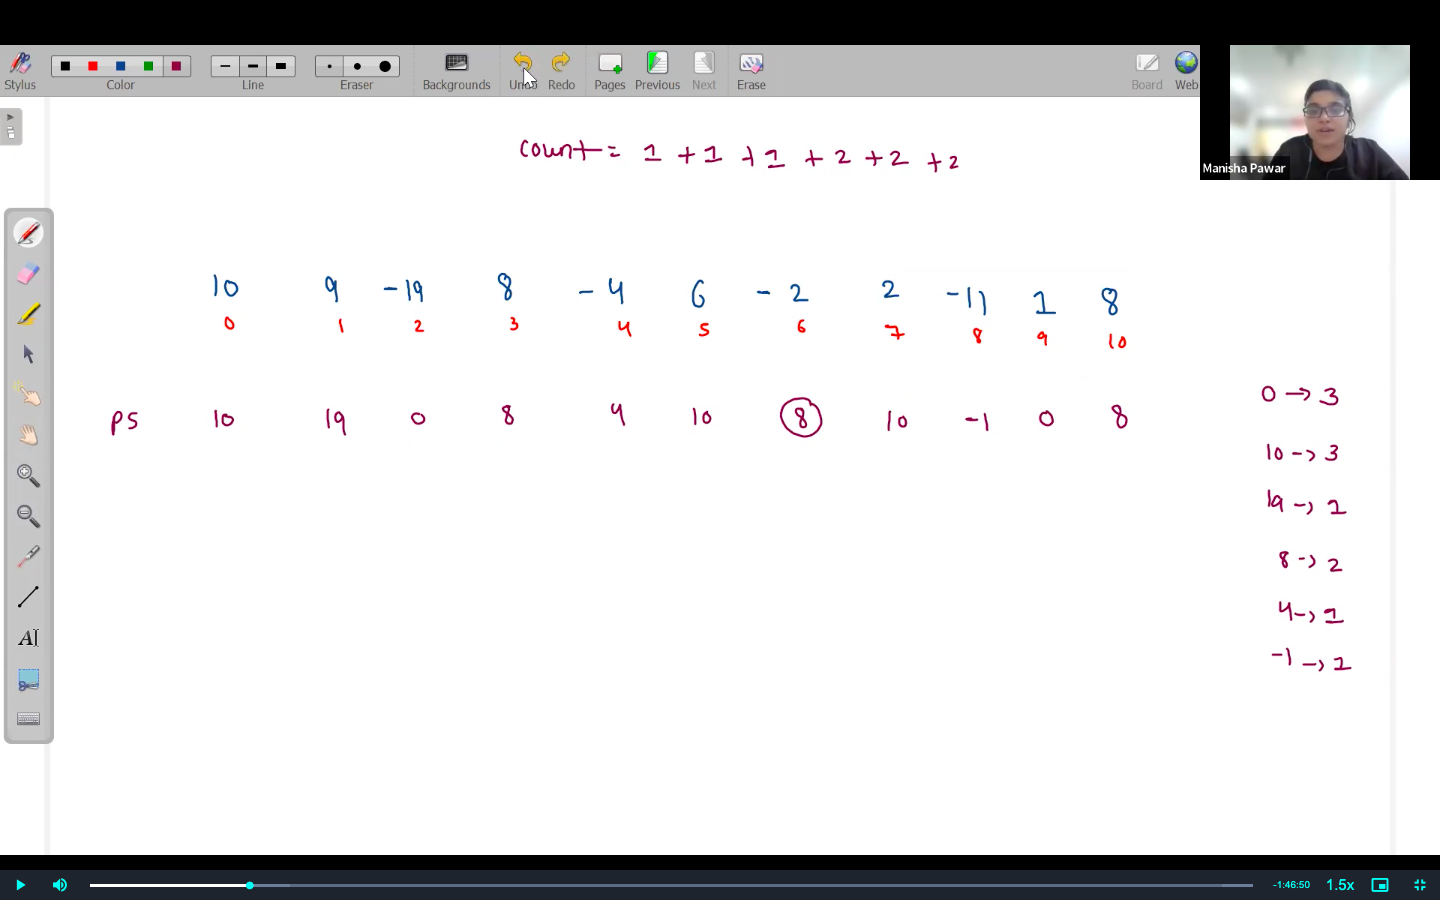 Stylus Color Line Eraser Backgrounds Undo Redo Pages Previous Next Erase Board Web
Manisha Pawar
count = 1 + 1 + 1 + 2 + 2 + 2
10 9 -19 8 -4 6 -2 2 -11 1 8
0 1 2 3 4 5 6 7 8 9 10
PS 10 19 0 8 4 10 8 10 -1 0 8
0 -> 3
10 -> 3
19 -> 1
8 -> 2
4 -> 1
-1 -> 1
AI
-1:46:50 1.5x